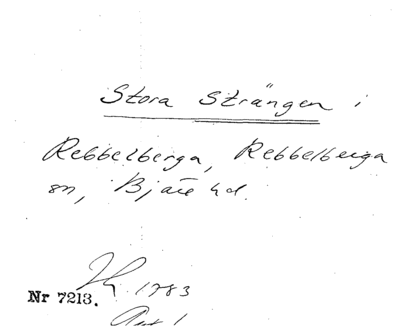 Stora Strängen i
Rebbelberga, Rebbelberga
sn, Bjäre hd.
1783
Nr 7213.
Akt 1